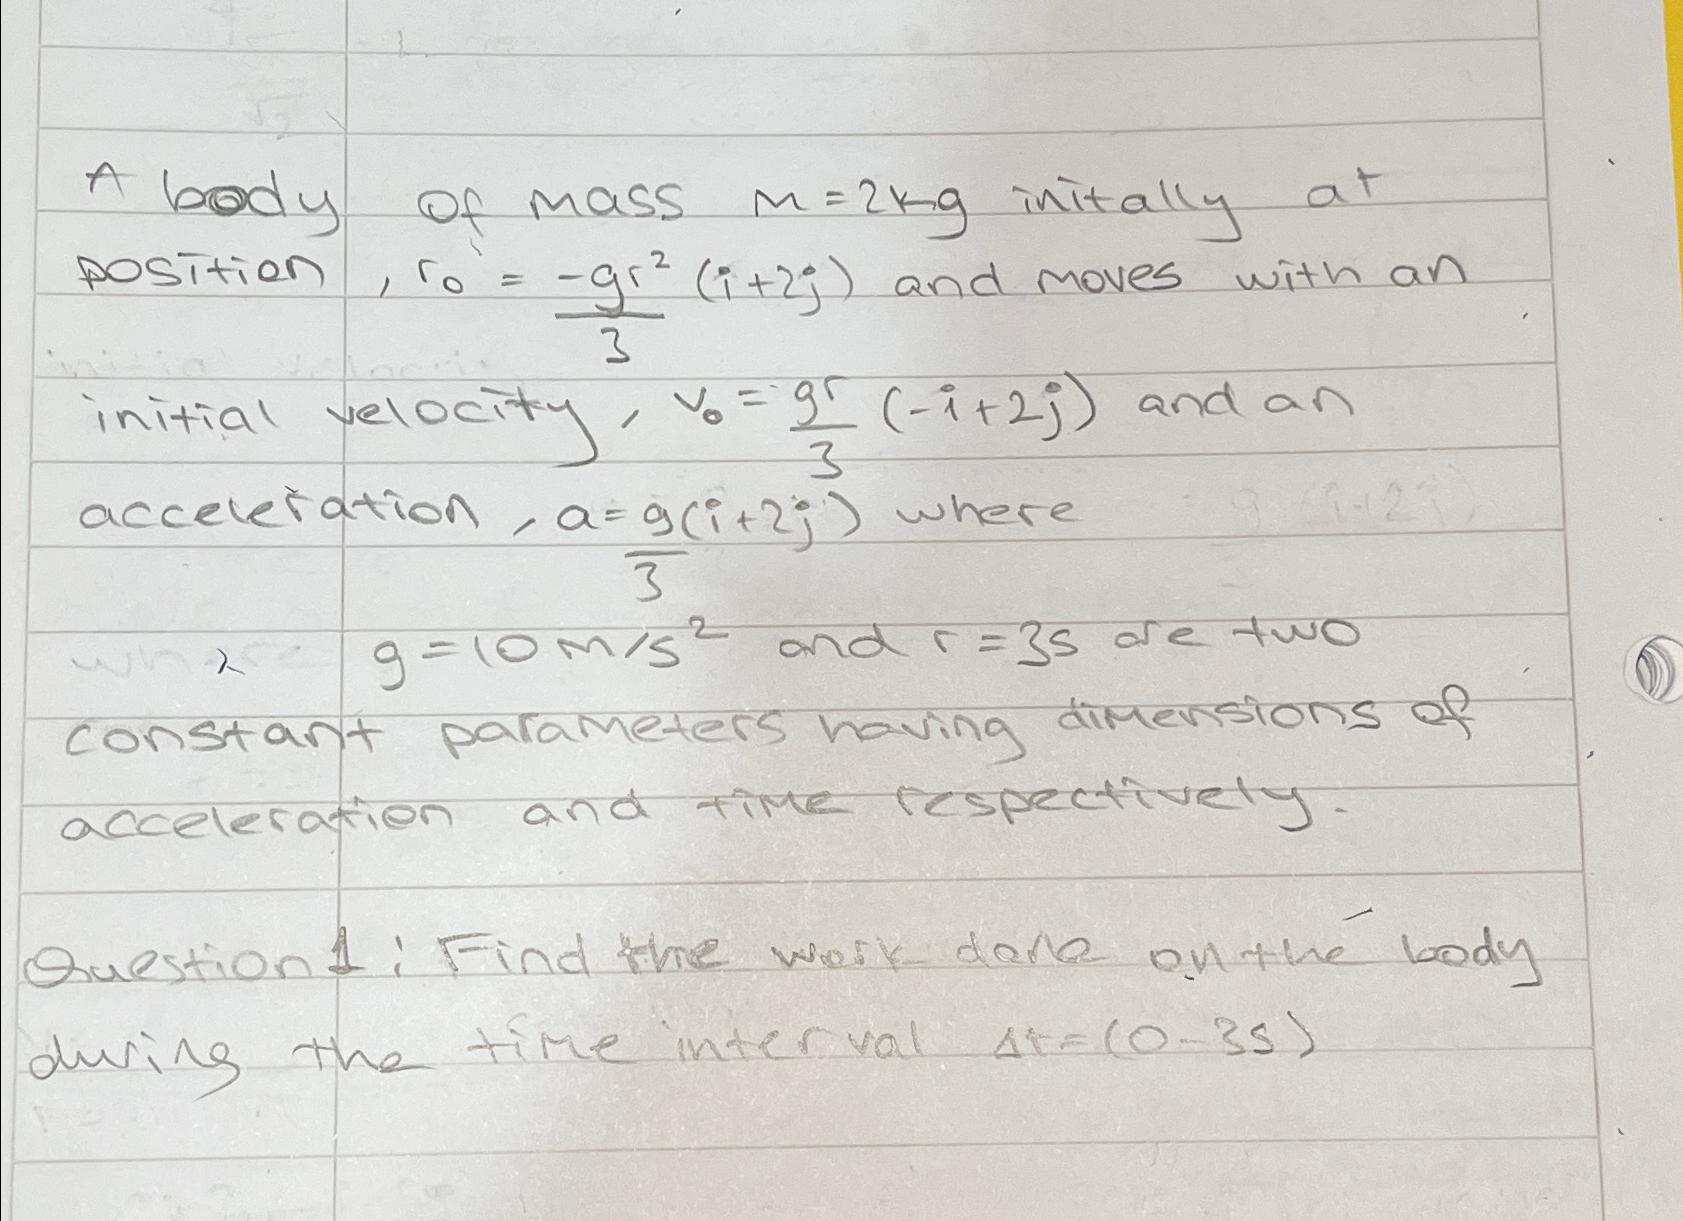 A body of mass m=2kg initally at
position, r₀ = -gr²/3 (i+2j) and moves with an
initial velocity, v₀ = gr/3 (-i+2j) and an
acceleration, a = g/3 (i+2j) where
g=10m/s² and r=3s are two
constant parameters having dimensions of
acceleration and time respectively.
Question 1: Find the work done on the body
during the time interval Δt=(0-3s)